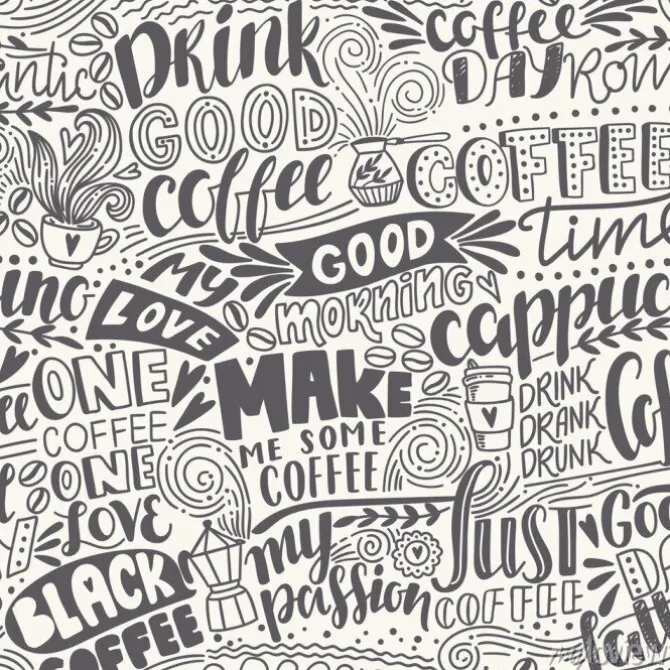 Drink
GOOD
coffee
coffee
DAY
COFFEE
time
MY
LOVE
GOOD
MORNING
ONE
COFFEE
ONE
LOVE
MAKE
ME SOME
COFFEE
DRINK
DRANK
DRUNK
BLACK
COFFEE
my
passion
Just
COFFEE